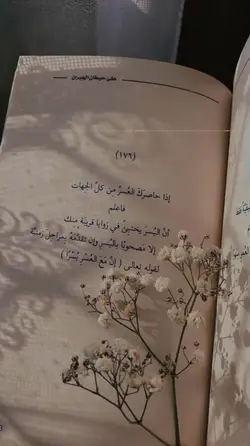 على حيطان الهجران
(١٧٦)
إذا حاصرك العُسرُ من كلّ الجهات
فاعلم
أنّ اليُسرَ يختبئ في زوايا قريبة منك
إلا مصحوبًا باليُسر وإن تقدّمَهُ بمراحل زمنيّة
لقوله تعالى ( إِنَّ مَعَ العُسْرِ يُسْرًا )